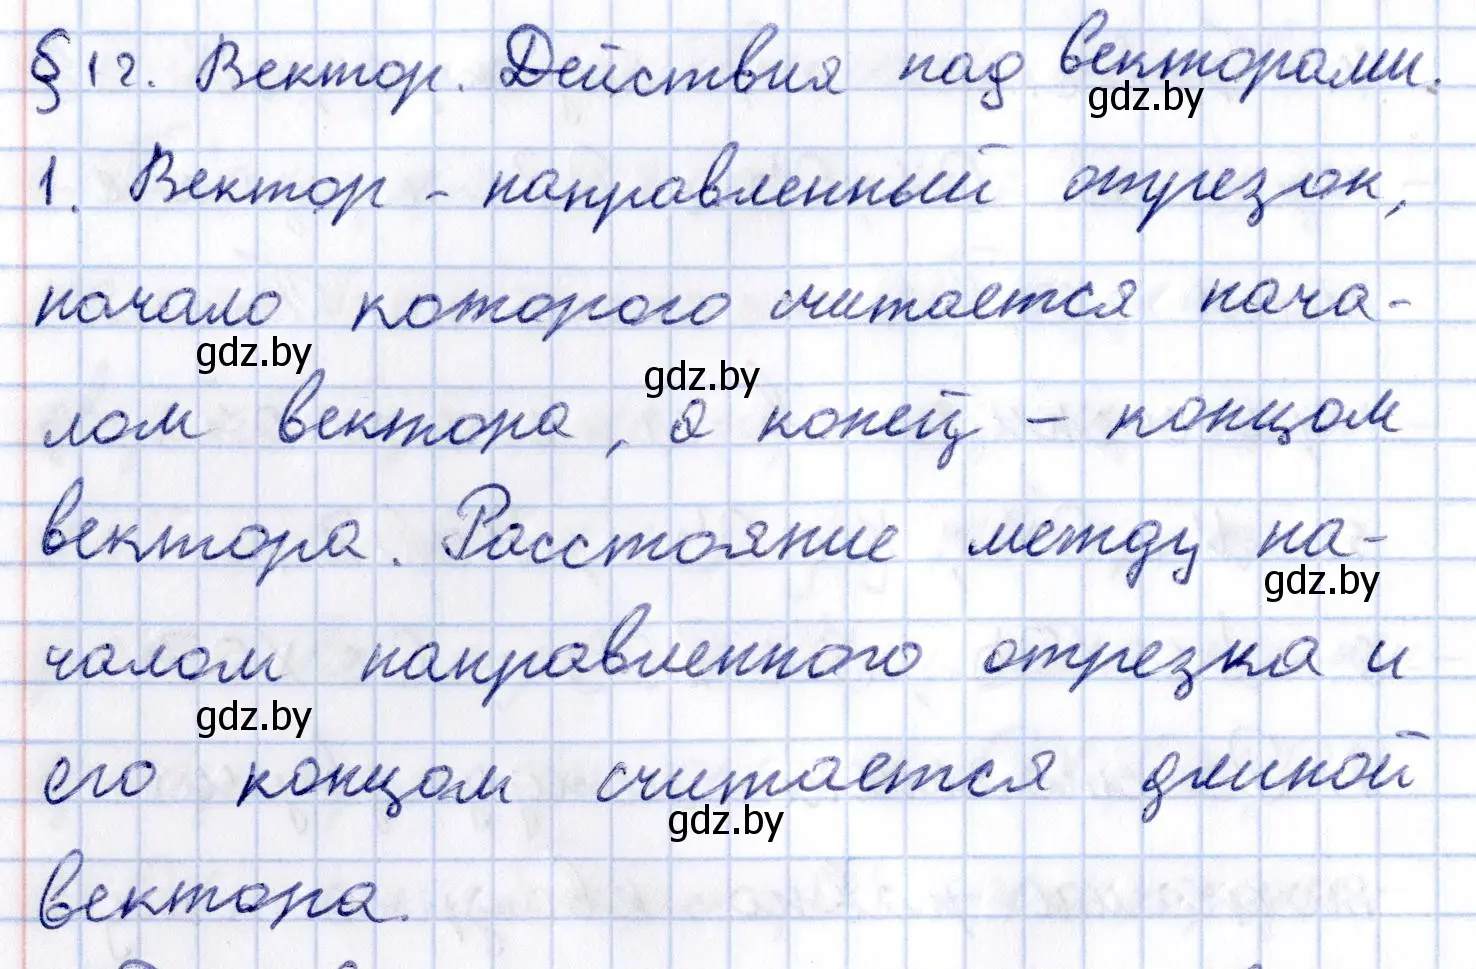 § 12. Вектор. Действия над векторами.
gdz.by
1. Вектор - направленный отрезок,
начало которого считается нача-
gdz.by
gdz.by
лом вектора, а конец - концом
вектора. Расстояние между на-
gdz.by
чалом направленного отрезка и
gdz.by
его концом считается длиной
gdz.by
вектора.